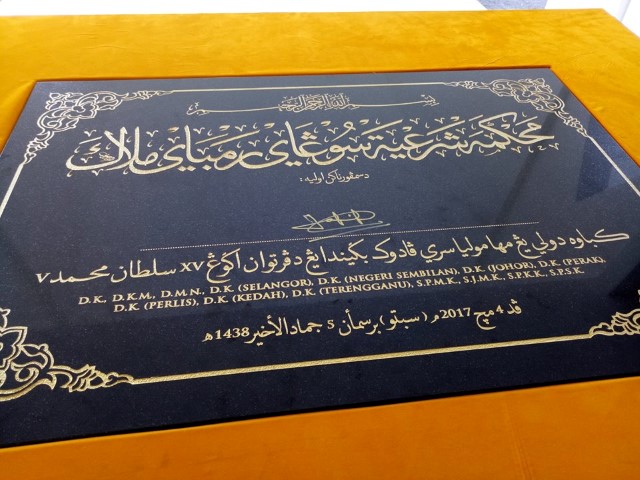 بسم الله الرحمن الرحيم
محكمة شرعية سوڠاي رمباي ملاك
دسمڤورناكن اوليه :
كباوه دولي يڠ مها موليا سري ڤادوك بݢيندا يڠ دڤرتوان اݢوڠ XV سلطان محمد V
D.K., D.K.M., D.M.N., D.K. (SELANGOR), D.K. (NEGERI SEMBILAN), D.K. (JOHOR), D.K. (PERAK),
D.K. (PERLIS), D.K. (KEDAH), D.K. (TERENGGANU), S.P.M.K., S.J.M.K., S.P.K.K., S.P.S.K.
ڤد 4 مچ 2017م (سبتو) برسمأن 5 جماد الأخير 1438ه